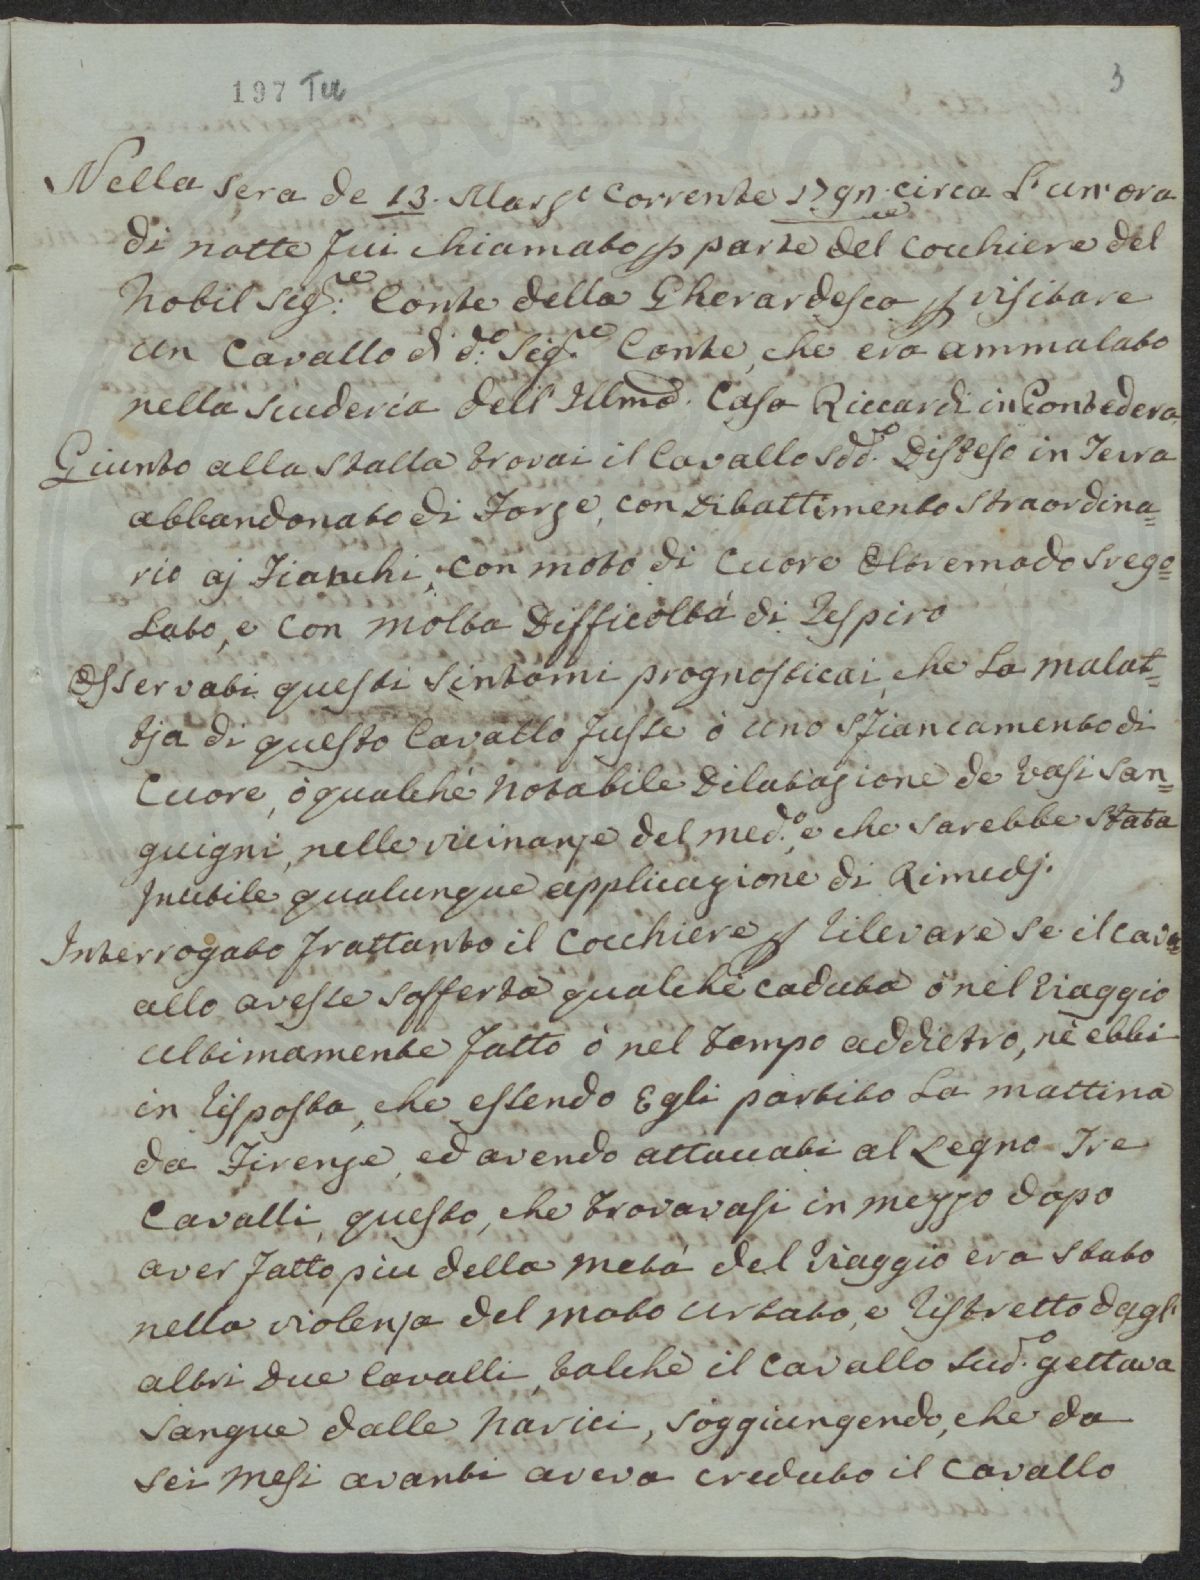 197 Tu
3
Nella sera de 13. Marzo corrente circa l'un'ora
di notte fui chiamato p parte del cocchiere del
Nobil Sig.re Conte della Gherardesca p visitare
un Cavallo di d.o Sig.re Conte, che era ammalato
nella scuderia dell' Illma. Casa Riccardi in Pontedera
Giunto alla stalla trovai il Cavallo sdd.o Disteso in Terra
abbandonato di Forze, con Dibattimento straordina=
rio aj Fianchi, con moto di Cuore Oltremodo srego=
lato, e con molta Difficoltà di Respiro
Osservati questi sintomi prognosticai, che la malat=
tja di questo Cavallo fusse ò uno sfiancamento di
Cuore, ò qualche notabile Dilatazione de Vasi san=
guigni, nelle vicinanze del med.o, e che sarebbe stata
Inutile qualunque applicazione di Rimedj.
Interrogato frattanto il Cocchiere p rilevare se il cava=
allo avesse sofferta qualche caduta ò nel Viaggio
ultimamente fatto ò nel tempo addietro, nè ebbi
in Risposta, che essendo Egli partito la mattina
da Firenze, ed avendo attaccati al Legno Tre
Cavalli, questo, che trovavasi in mezzo dopo
aver fatto piu della metà del Viaggio era stato
nella violenza del moto urtato, e Ristretto dagl'
altri due Cavalli, talchè il Cavallo sud.o gettava
sangue dalle Narici, soggiungendo, che da
sei Mesi avanti aveva creduto il Cavallo